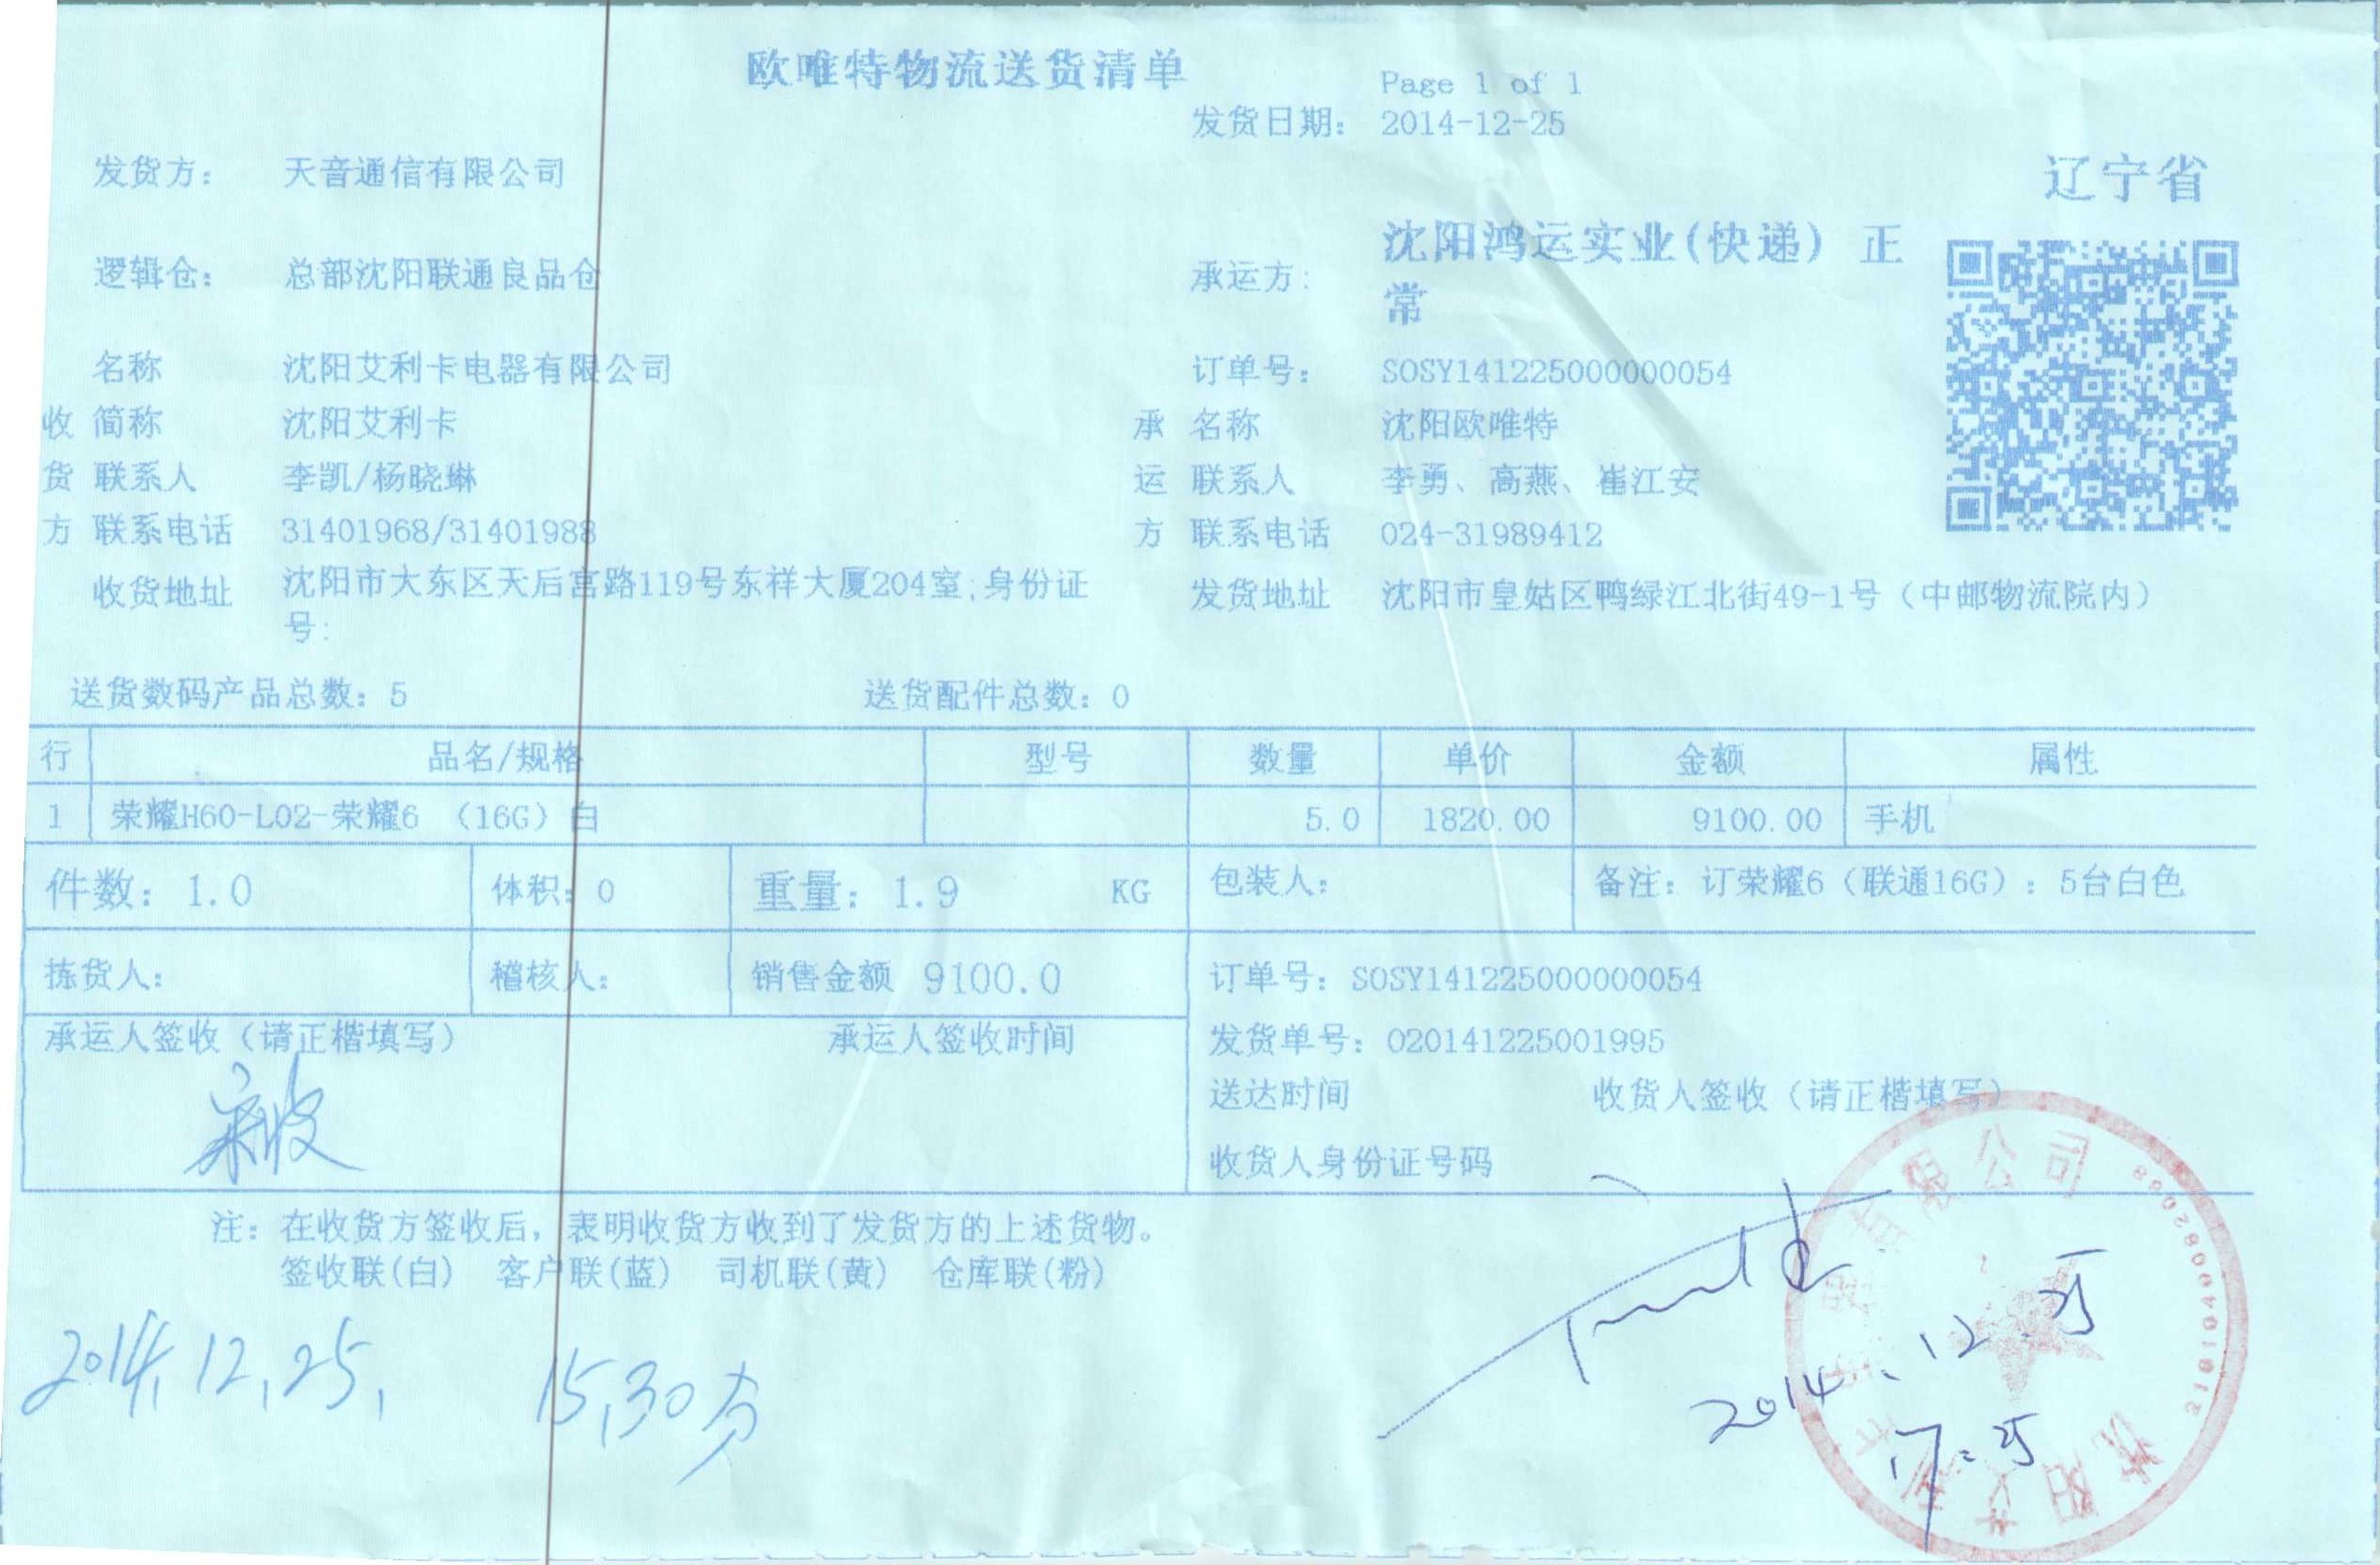 欧唯特物流送货清单
Page 1 of 1
发货日期: 2014-12-25
辽宁省
发货方: 天音通信有限公司
逻辑仓: 总部沈阳联通良品仓
承运方: 沈阳鸿运实业(快递) 正
常
名称 沈阳艾利卡电器有限公司 订单号: SOSY141225000000054
收 简称 沈阳艾利卡 承 名称 沈阳欧唯特
货 联系人 李凯/杨晓琳 运 联系人 李勇、高燕、崔江安
方 联系电话 31401968/31401988 方 联系电话 024-31989412
收货地址 沈阳市大东区天后宫路119号东祥大厦204室;身份证
号:
发货地址 沈阳市皇姑区鸭绿江北街49-1号（中邮物流院内）
送货数码产品总数: 5 送货配件总数: 0
行 品名/规格 型号 数量 单价 金额 属性
1 荣耀H60-L02-荣耀6 （16G）白 5.0 1820.00 9100.00 手机
件数: 1.0 体积: 0 重量: 1.9 KG 包装人: 备注: 订荣耀6（联通16G）: 5台白色
拣货人: 稽核人: 销售金额 9100.0 订单号: SOSY141225000000054
承运人签收（请正楷填写） 承运人签收时间 发货单号: 020141225001995
送达时间 收货人签收（请正楷填写）
收货人身份证号码
注: 在收货方签收后, 表明收货方收到了发货方的上述货物。
签收联(白) 客户联(蓝) 司机联(黄) 仓库联(粉)
2014.12.25. 15.30分
2014.12.25
17:25
沈阳艾利卡电器有限公司